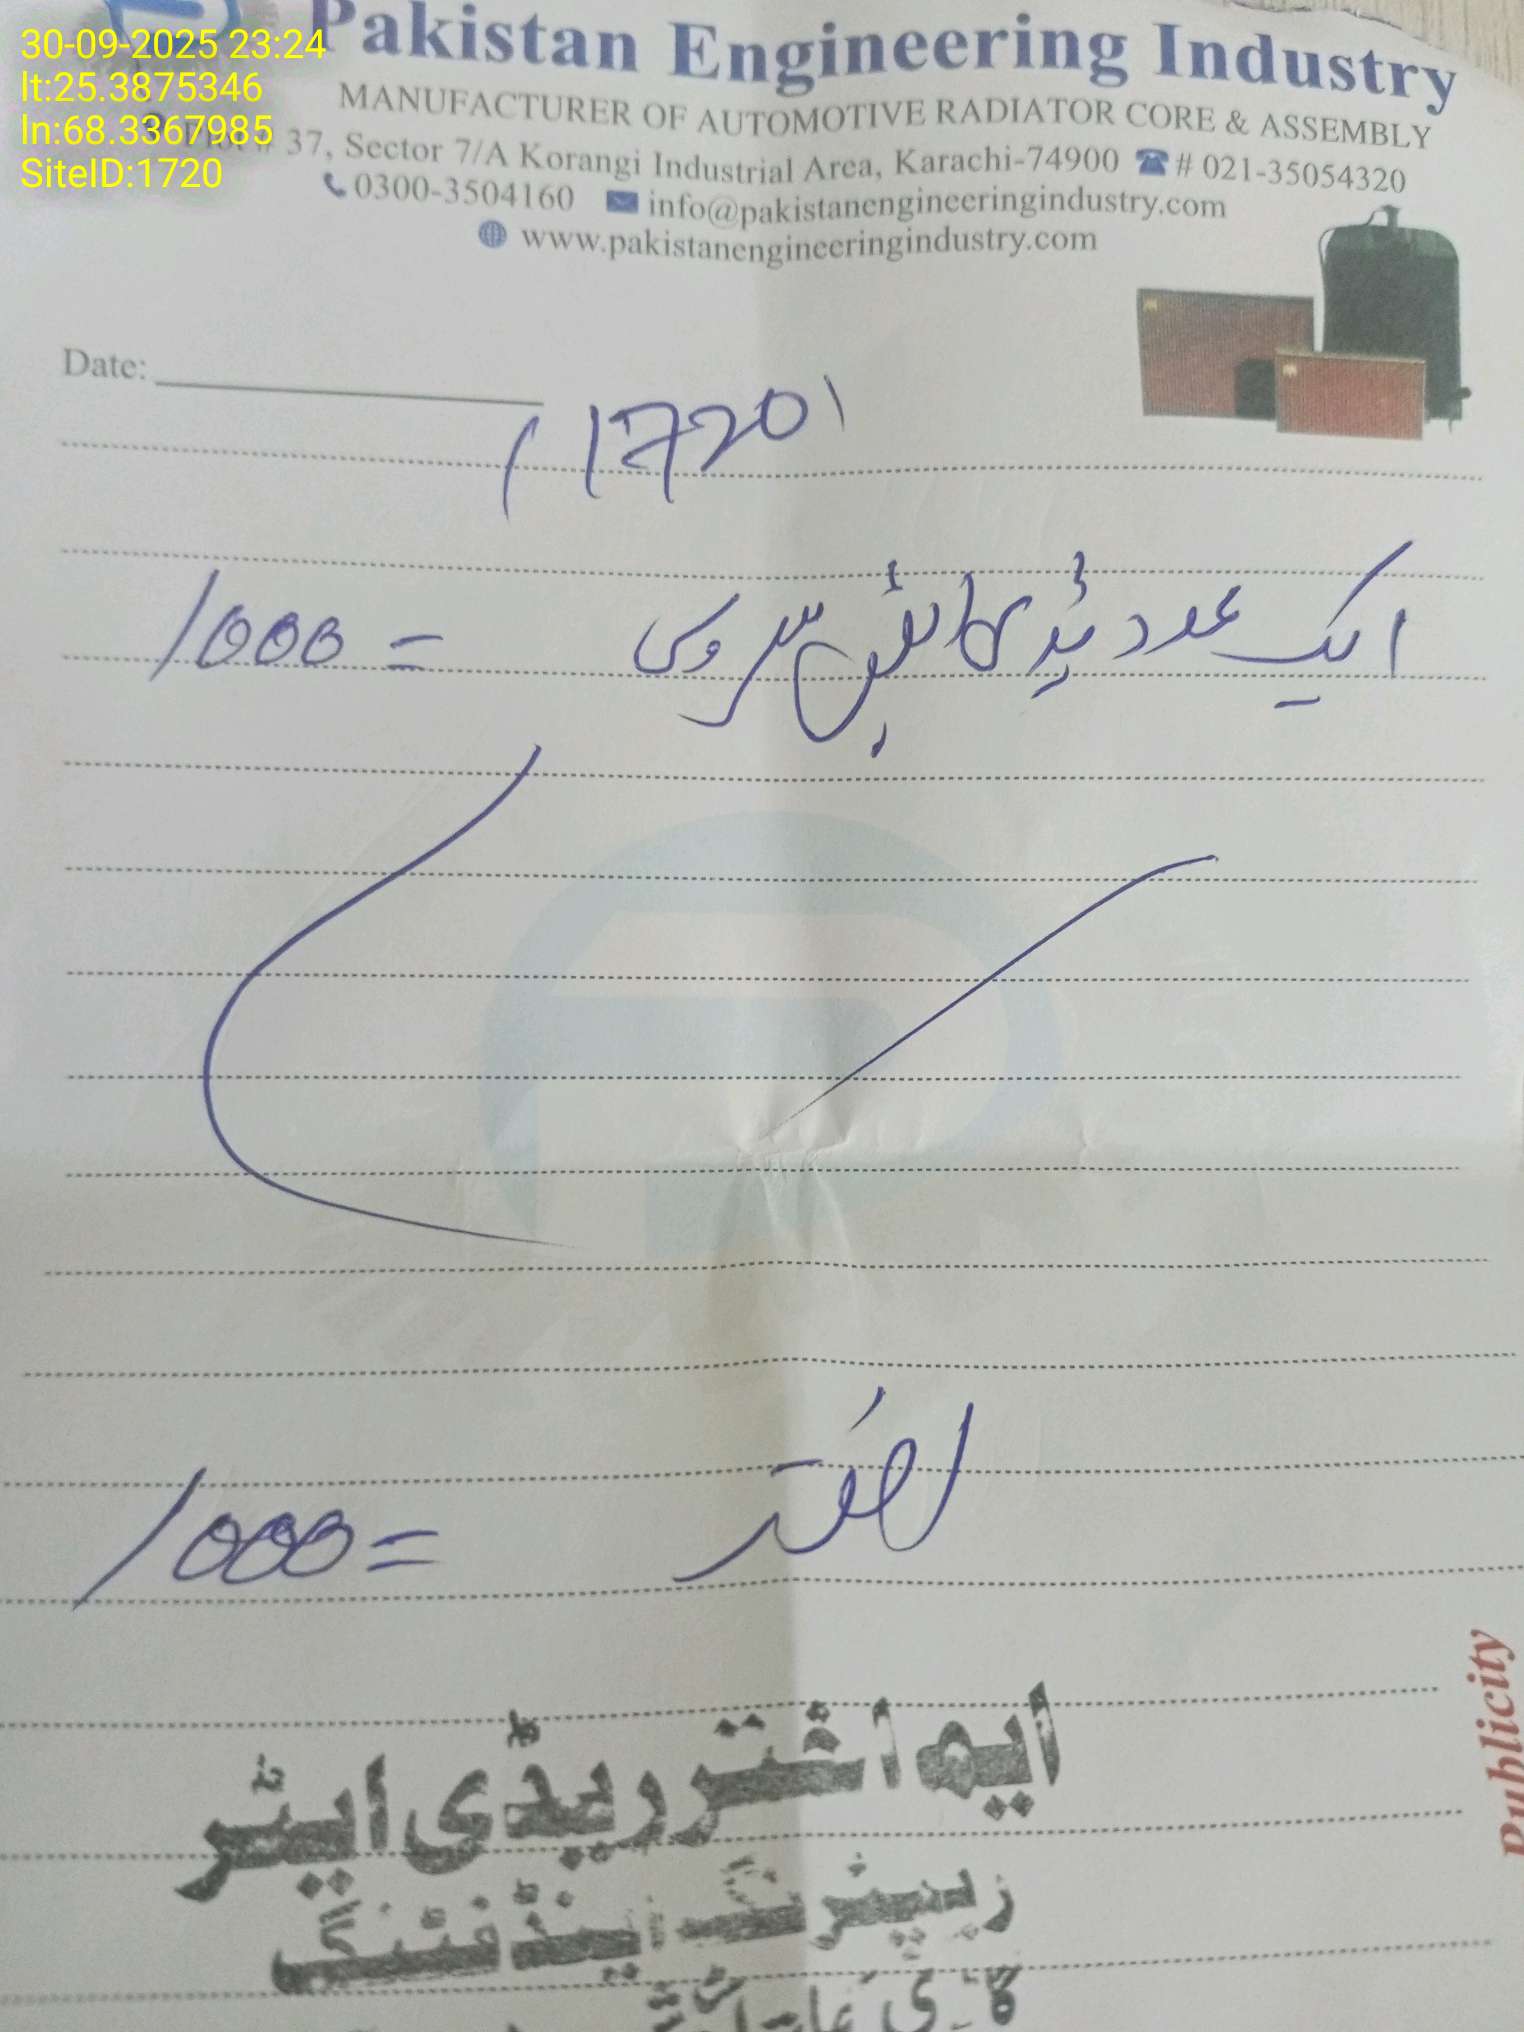 30-09-2025 23:24
lt:25.3875346
ln:68.3367985
SiteID:1720
Pakistan Engineering Industry
MANUFACTURER OF AUTOMOTIVE RADIATOR CORE & ASSEMBLY
37, Sector 7/A Korangi Industrial Area, Karachi-74900 # 021-35054320
0300-3504160 info@pakistanengineeringindustry.com
www.pakistanengineeringindustry.com
Date:
1720
ایک عدد سروس 1000=
1000=
ایم اختر ریڈی ایٹر
رپیئرنگ اینڈ فٹنگ
Publicity